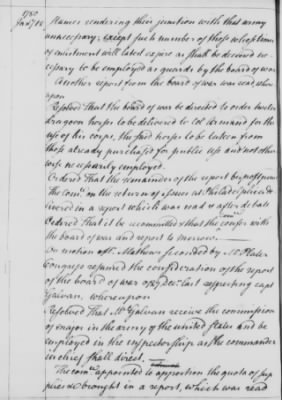 1780
Jany 12
stances rendering their junction with that army
unnecessary, except such number of those whose terms
of inlistment will latest expire as shall be deemed ne-
cessary to be employed as guards by the board of war
Another report from the board of war was read where
upon
Resolved That the board of war be directed to order twelve
dragoon horses to be delivered to Col Armand for the
use of his corps, the said horses to be taken from
those already purchased for public use and not other
wise necessarily employed.
Ordered That the remainder of the report be postponed
The Comee. on the return of Issues at Philadelphia de
livered in a report which was read & after debate
Ordered That it be recommitted & that the comee confer with
the board of war and report to morrow
On motion of Mr Mathews seconded by Mr Plater
Congress resumed the consideration of the report
of the board of war of 27 Decr. last respecting capt
Galvan, whereupon
Resolved That Mr Galvan receive the commission
of major in the army of the united states and be
employed in the inspectorship as the commander
in chief shall direct.
The Comee appointed to apportion the quota of sup
plies &c brought in a report, which was read